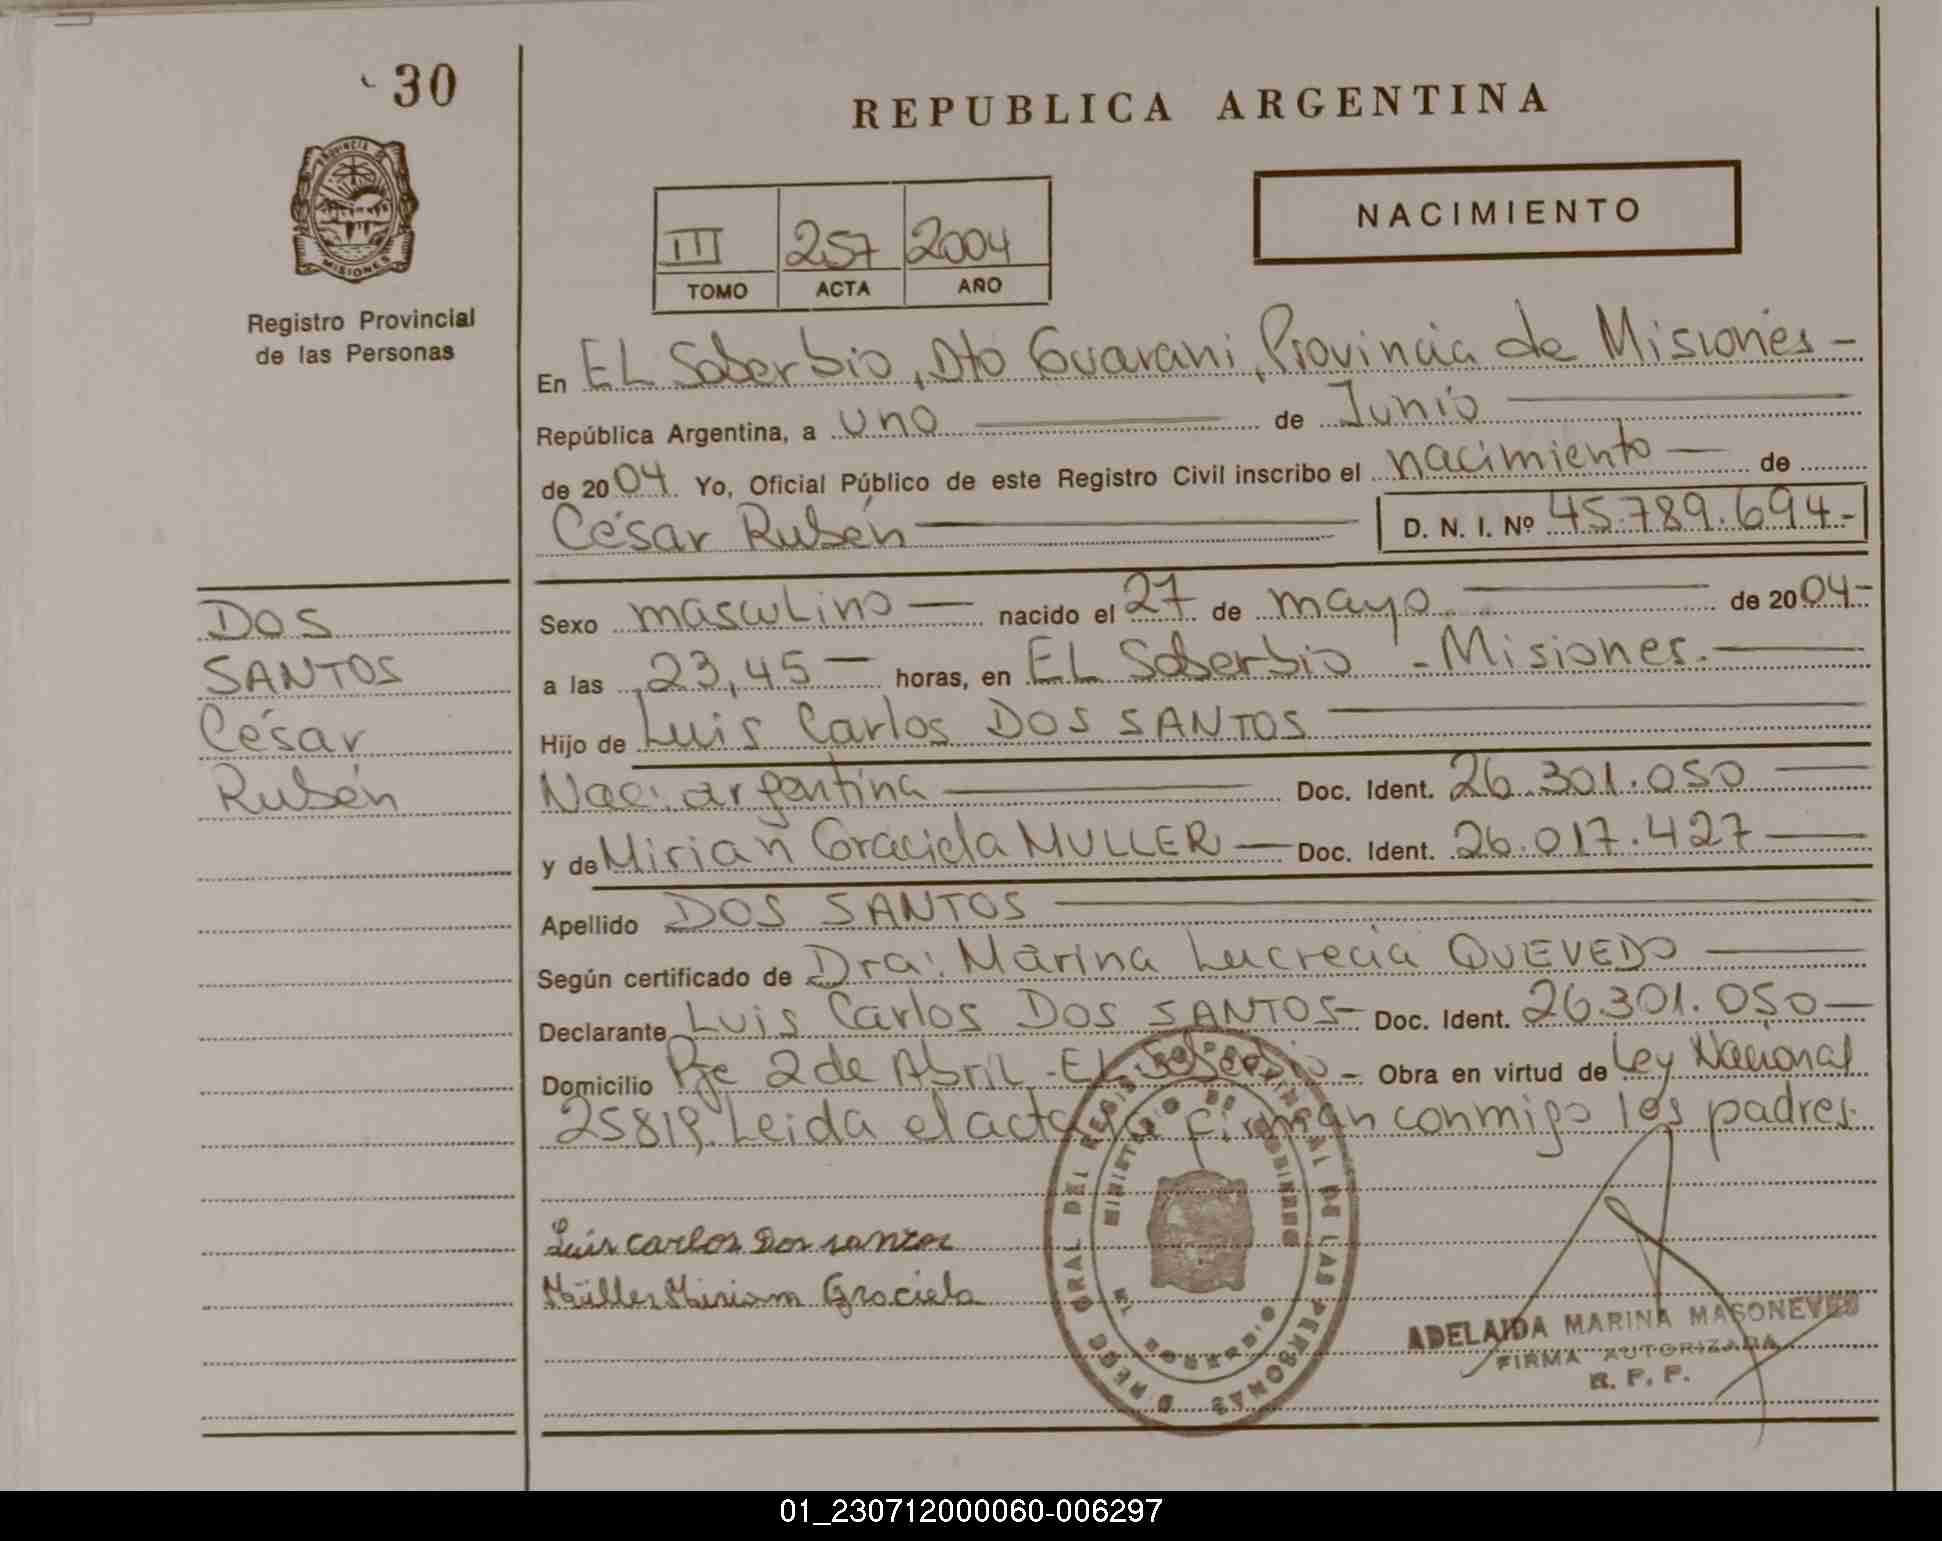 30
PROVINCIA DE
MISIONES
Registro Provincial
de las Personas
DOS
SANTOS
César
Rubén
REPUBLICA ARGENTINA
III 257 2004
TOMO ACTA AÑO
NACIMIENTO
En EL Soberbio, Dto Guarani, Provincia de Misiones -
República Argentina, a uno de Junio
de 2004 Yo, Oficial Público de este Registro Civil inscribo el nacimiento — de
César Rubén D. N. I. Nº 45.789.694-
Sexo masculino — nacido el 27 de mayo de 2004-
a las 23,45 — horas, en EL Soberbio - Misiones.
Hijo de Luis Carlos DOS SANTOS
Nac: argentina Doc. Ident. 26.301.050
y de Mirian Graciela MULLER — Doc. Ident. 26.017.427
Apellido DOS SANTOS
Según certificado de Dra: Marina Lucrecia QUEVEDO
Declarante Luis Carlos DOS SANTOS- Doc. Ident. 26301.050—
Domicilio Pje 2 de Abril - EL Soberbio - Obra en virtud de Ley Nacional
25819. Leida el acta la firman conmigo los padres.
Luis carlos Dos santos
Müller Miriam Graciela
DIRECC. GRAL DEL REGIS PROVINCIAL DE LAS PERSONAS
MINISTERIO DE GOBIERNO
EL SOBERBIO
ADELAIDA MARINA
FIRMA AUTORIZADA
R. P. P.
01_230712000060-006297